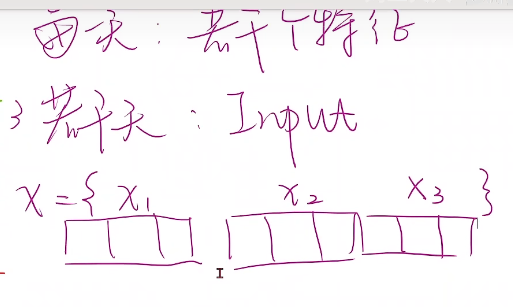 天：若干个特征
3 若干天：Input
X={ x1 x2 x3 }